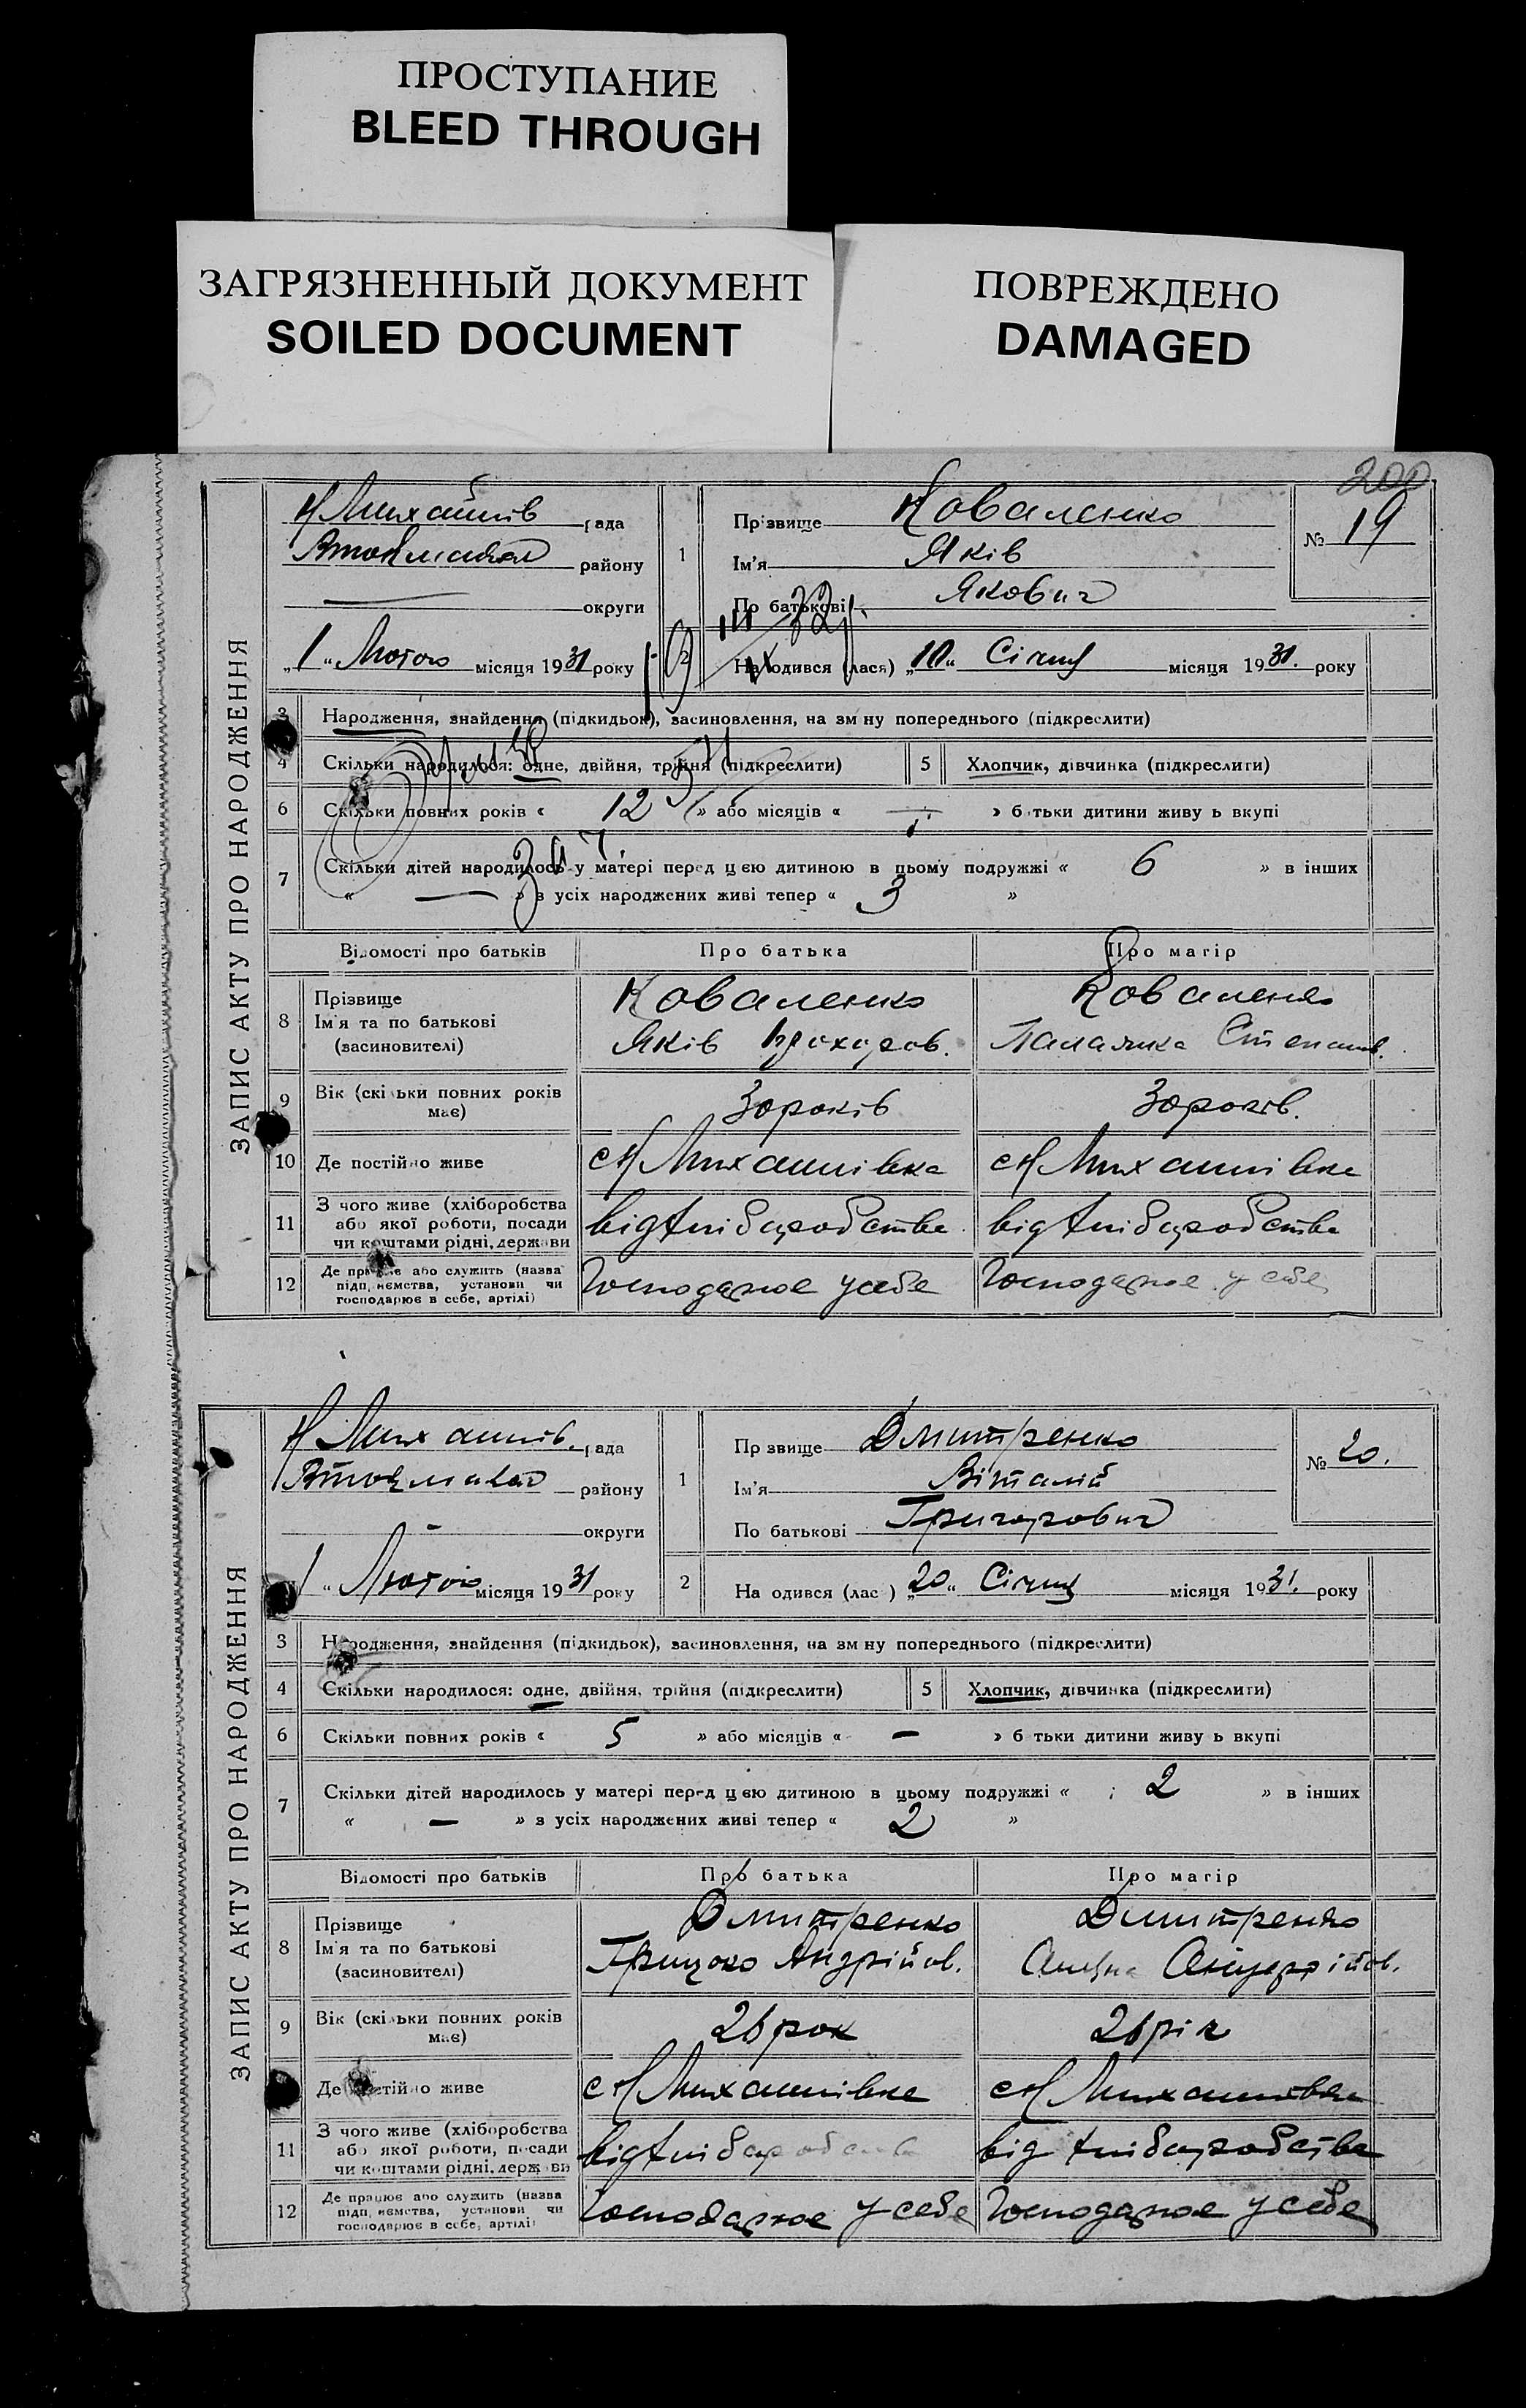 ПРОСТУПАНИЕ
BLEED THROUGH
ЗАГРЯЗНЕННЫЙ ДОКУМЕНТ
SOILED DOCUMENT
ПОВРЕЖДЕНО
DAMAGED
200
ЗАПИС АКТУ ПРО НАРОДЖЕННЯ
Н Михайлів рада
району
округи
„1“ Лютого місяця 1931 року
1
Прізвище Коваленко
Ім'я Яків
По батькові Якович
№ 19
2
Народився (лася) „10“ Січня місяця 1931. року
3 Народження, знайдення (підкидьок), засиновлення, на зм ну попереднього (підкреслити)
4 Скільки народилося: одне, двійня, трійня (підкреслити)
5 Хлопчик, дівчинка (підкреслити)
6 Скільки повних років « 12 » або місяців « — » б тьки дитини живу ь вкупі
7 Скільки дітей народилось у матері перед цією дитиною в цьому подружжі « 6 » в інших
« — » з усіх народжених живі тепер « 3 »
Відомості про батьків
Про батька
Про матір
8 Прізвище
Ім'я та по батькові
(засиновителі)
Коваленко
Яків Прохоров.
Коваленко
Палажка Степанів.
9 Вік (скільки повних років
має)
30 років
30 років.
10 Де постійно живе
с Н Михайлівка
с Н Михайлівка
11 З чого живе (хліборобства
або якої роботи, посади
чи коштами рідні, держави
від хліборобства
від хліборобства
12 Де працює або служить (назва
підп иємства, установи чи
господарює в себе, артілі)
Господарює у себе
Господарює у себе
ЗАПИС АКТУ ПРО НАРОДЖЕННЯ
Н Михайлів. рада
району
округи
1 “ Лютого місяця 1931 року
1
Пр звище Дмитренко
Ім'я Віталій
По батькові Григорович
№ 20.
2
На одився (лас ) „20“ Січня місяця 1931. року
3 Народження, знайдення (підкидьок), засиновлення, на зм ну попереднього (підкреслити)
4 Скільки народилося: одне, двійня, трійня (підкреслити)
5 Хлопчик, дівчинка (підкреслити)
6 Скільки повних років « 5 » або місяців « — » б тьки дитини живу ь вкупі
7 Скільки дітей народилось у матері перед цією дитиною в цьому подружжі « 2 » в інших
« — » з усіх народжених живі тепер « 2 »
Відомості про батьків
Про батька
Про матір
8 Прізвище
Ім'я та по батькові
(засиновителі)
Дмитренко
Грицько Андрійов.
Дмитренко
9 Вік (скільки повних років
має)
26 рок
26 рік
Де постійно живе
с Н Михайлівка
с Н Михайлівка
11 З чого живе (хліборобства
або якої роботи, посади
чи коштами рідні, держави
від хліборобства
від хліборобства
12 Де працює або служить (назва
підп иємства, установи чи
господарює в себе, артілі)
Господарює у себе
Господарює у себе